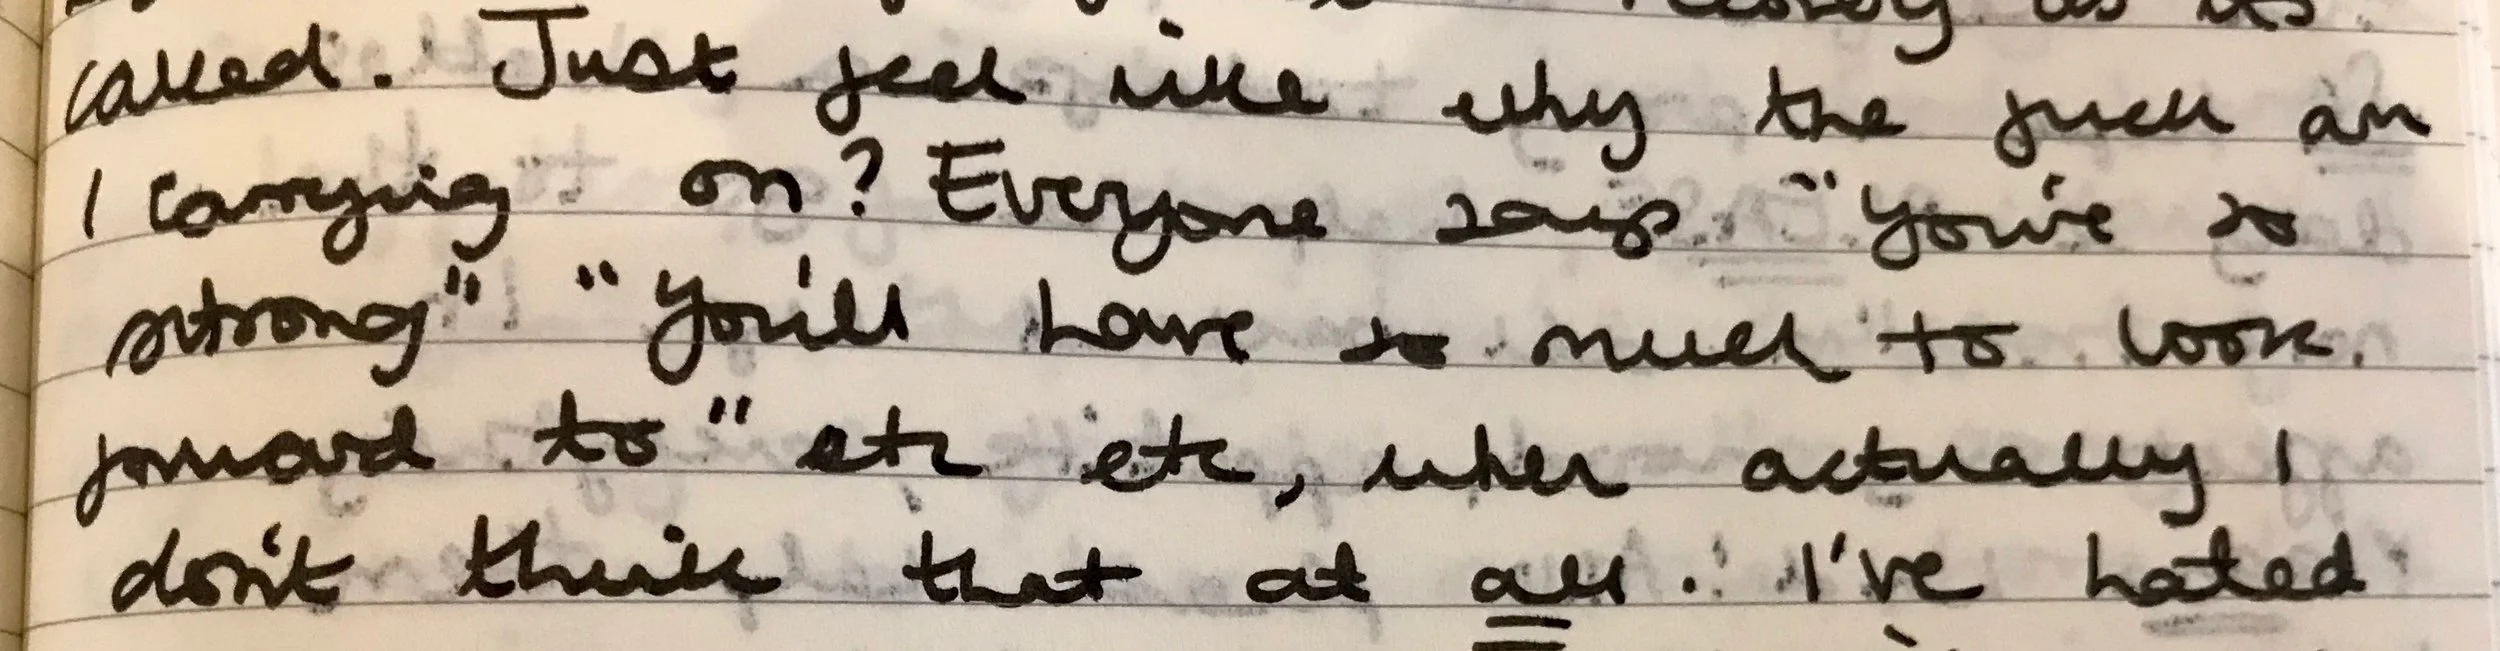 as its
called. Just feel like why the fuck am
I carrying on? Everyone says "you're so
strong" "you'll have so much to look
forward to" etc etc, when actually I
don't think that at all. I've hated